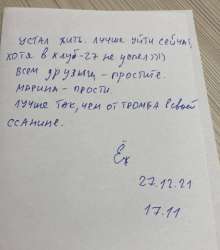 УСТАЛ ЖИТЬ. ЛУЧШЕ УЙТИ СЕЙЧАС,
ХОТЯ В КЛУБ-27 НЕ УСПЕЛ))))
ВСЕМ ДРУЗЬЯМ - ПРОСТИТЕ.
МАРИНА - ПРОСТИ.
ЛУЧШЕ ТАК, ЧЕМ ОТ ТРОМБА В СВОЕЙ
ССАНИНЕ.
Ёх
27.12.21
17.11